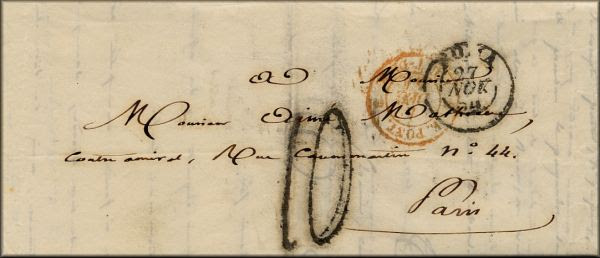 A Monsieur
Monsieur Aimé Mathieu,
Contre amiral, Rue Caumartin N° 44.
Paris
10
27